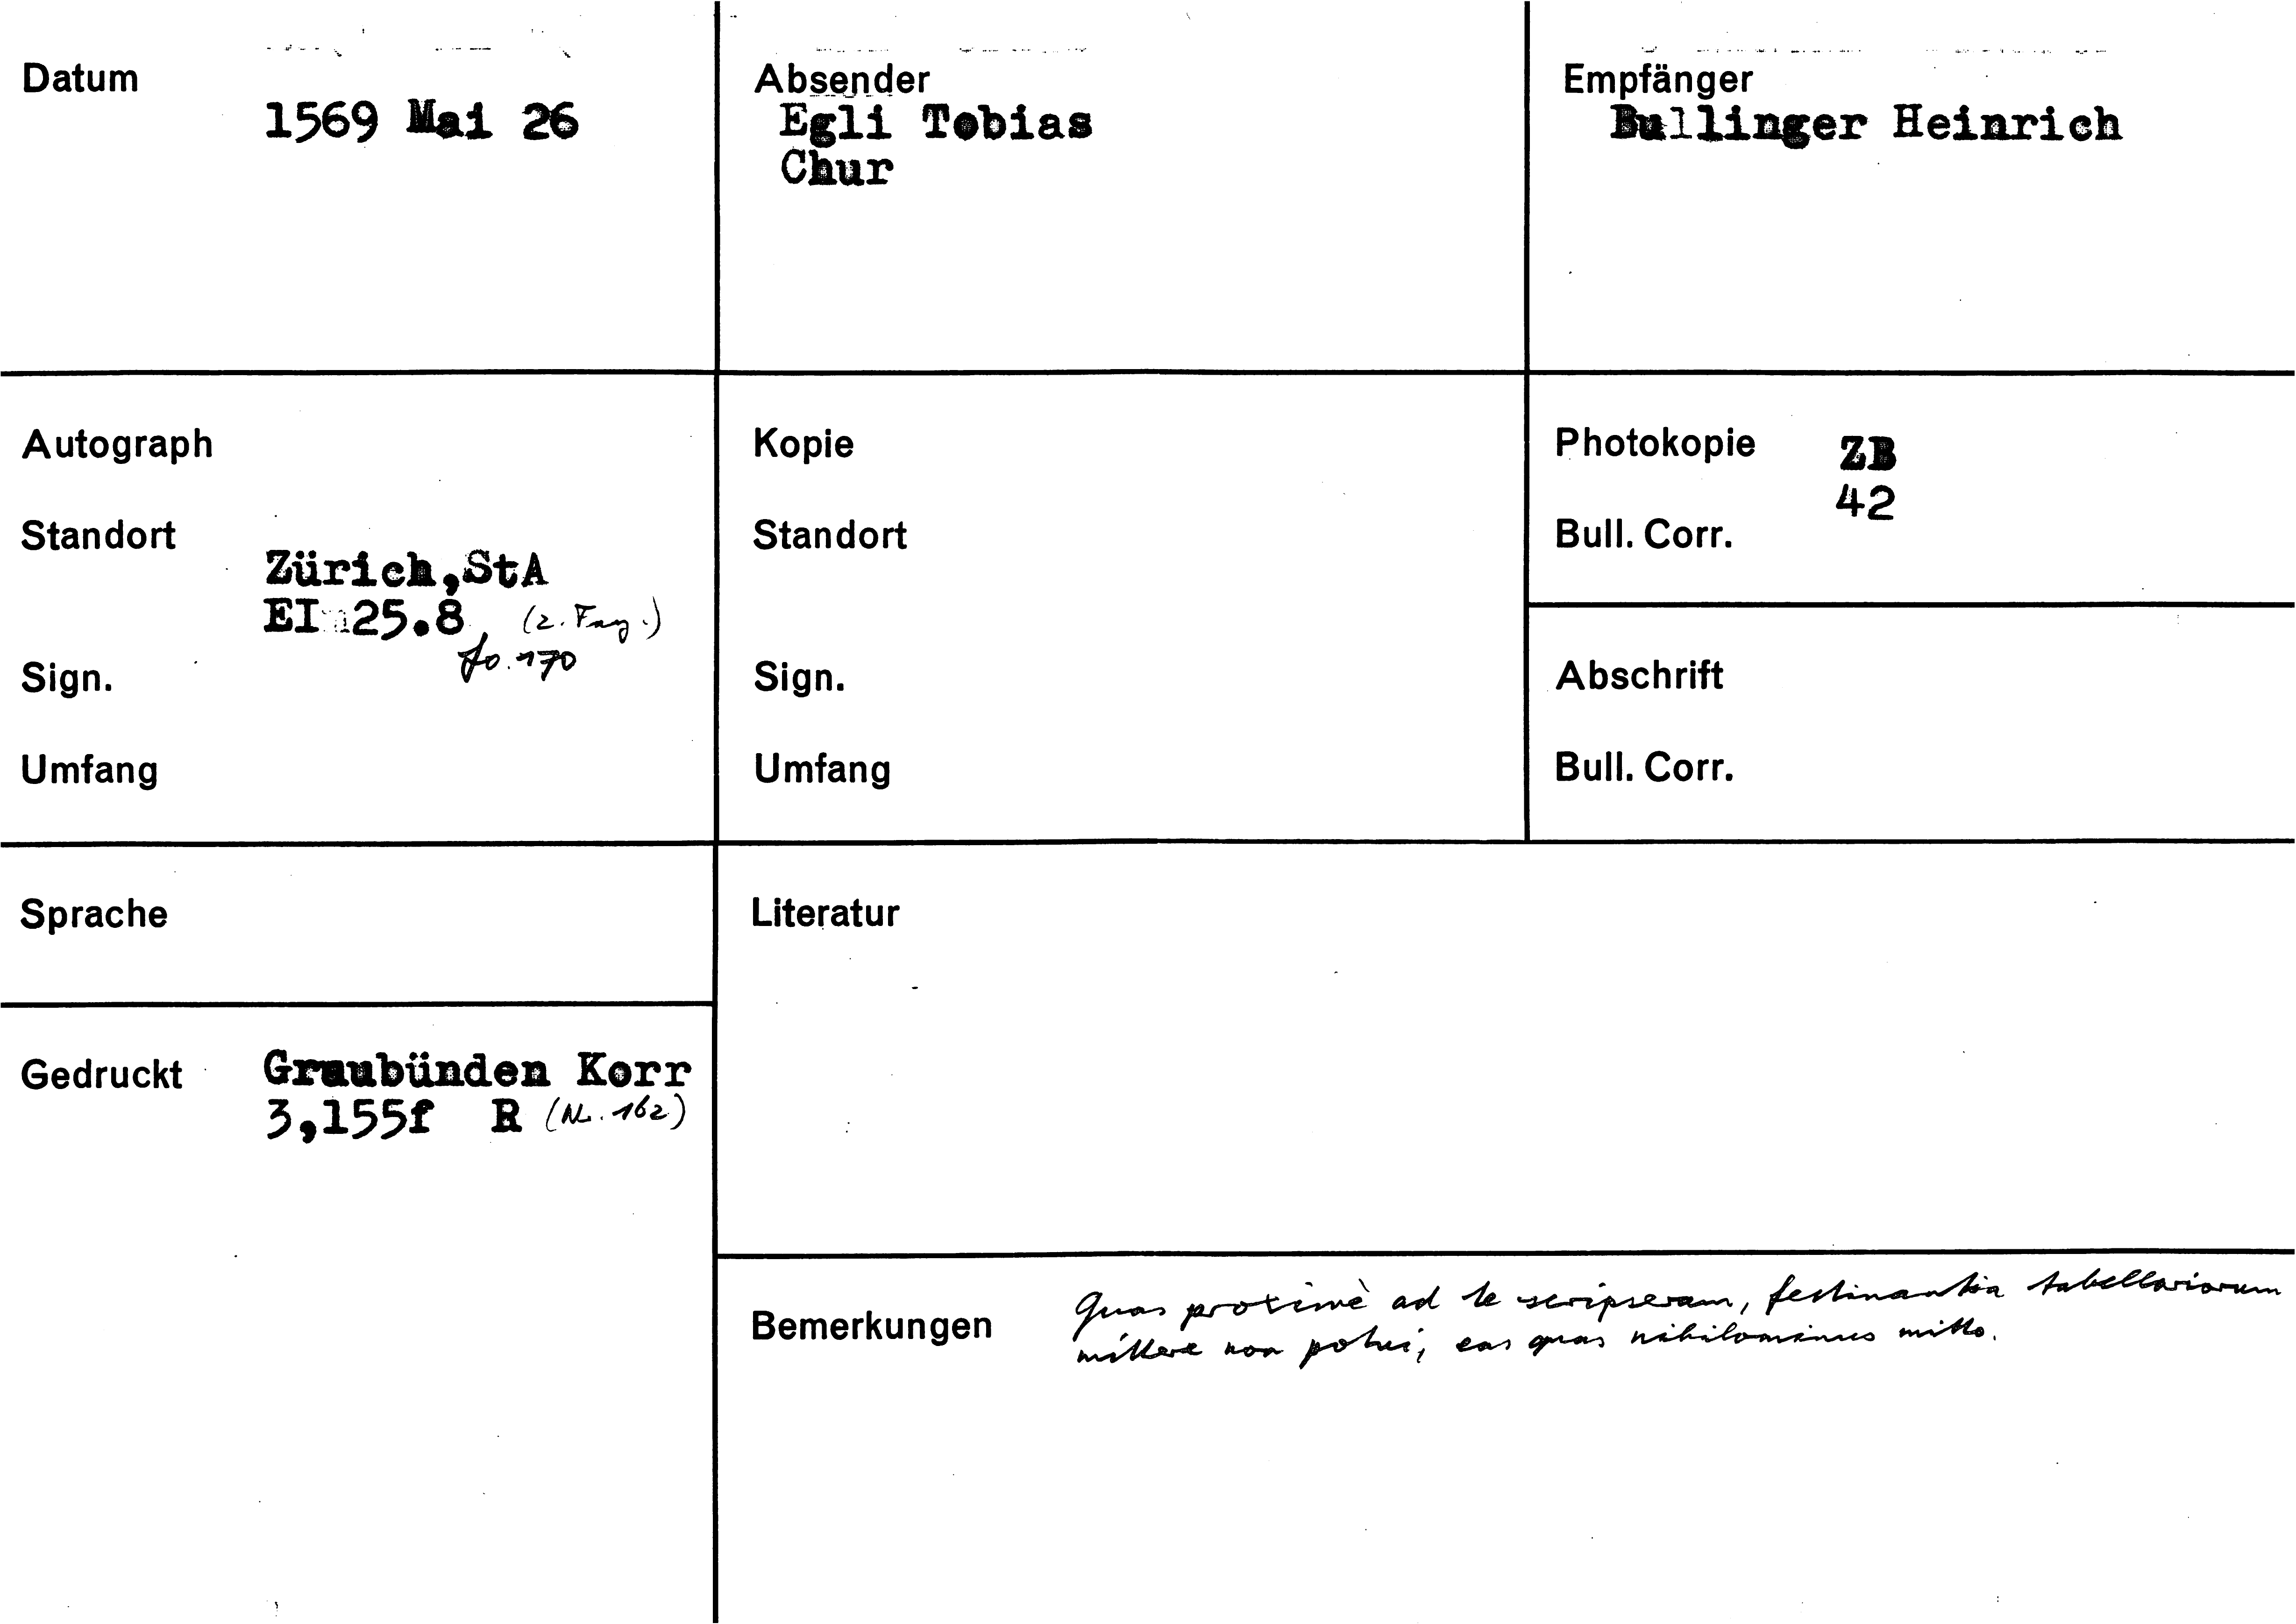 Datum
1569 Mai 26
Absender
Egli Tobias
Chur
Empfänger
Bullinger Heinrich
Autograph
Standort
Zürich,StA
EI 25.8, (2. Fasz.)
fo. 170
Sign.
Umfang
Kopie
Standort
Sign.
Umfang
Photokopie ZB
42
Bull. Corr.
Abschrift
Bull. Corr.
Sprache
Gedruckt Graubünden Korr
3,155f R (Nr. 162)
Literatur
Bemerkungen
Quas proximè ad te scripseram, festinantia tabellariorum
mittere non potui, eas quas nihilominus mitto.